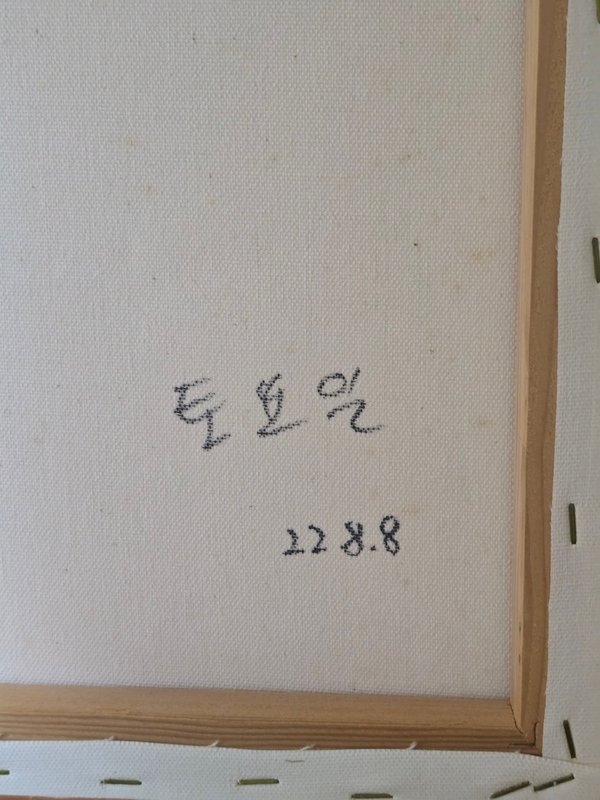 토요일
22 8.8